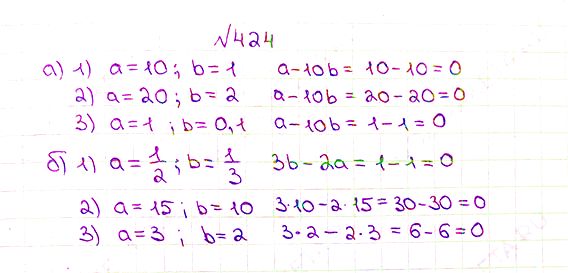 №424
а) 1) a=10; b=1 a-10b = 10-10=0
2) a=20; b=2 a-10b = 20-20=0
3) a=1; b=0,1 a-10b = 1-1=0
б) 1) a=1/2; b=1/3 3b-2a=1-1=0
2) a=15; b=10 3·10-2·15=30-30=0
3) a=3; b=2 3·2-2·3=6-6=0